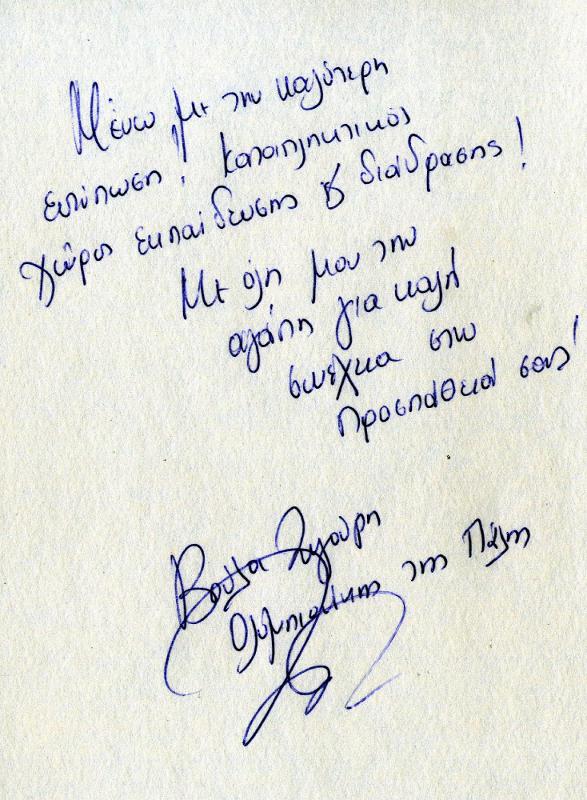 Μένω με την καλύτερη
εντύπωση! Καταπληκτικός
χώρος εκπαίδευσης & διάδρασης!
Με όλη μου την
αγάπη για καλή
συνέχεια στην
προσπάθειά σας!
Βούλα Ζυγούρη
Ολυμπιονίκης της Πάλης